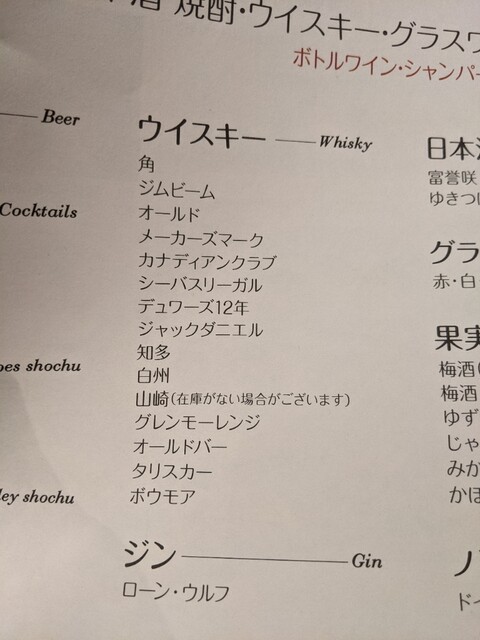 焼酎・ウイスキー・グラス
ボトルワイン・シャンパ
Beer
ウイスキー Whisky
角
ジムビーム
オールド
メーカーズマーク
カナディアンクラブ
シーバスリーガル
デュワーズ12年
ジャックダニエル
知多
白州
山崎(在庫がない場合がございます)
グレンモーレンジ
オールドパー
タリスカー
ボウモア
Cocktails
shochu
shochu
ジン Gin
ローン・ウルフ
日本
富誉咲
ゆきつ
グラ
赤・白
果実
梅酒
梅酒
ゆず
じゃ
みか
かぼ